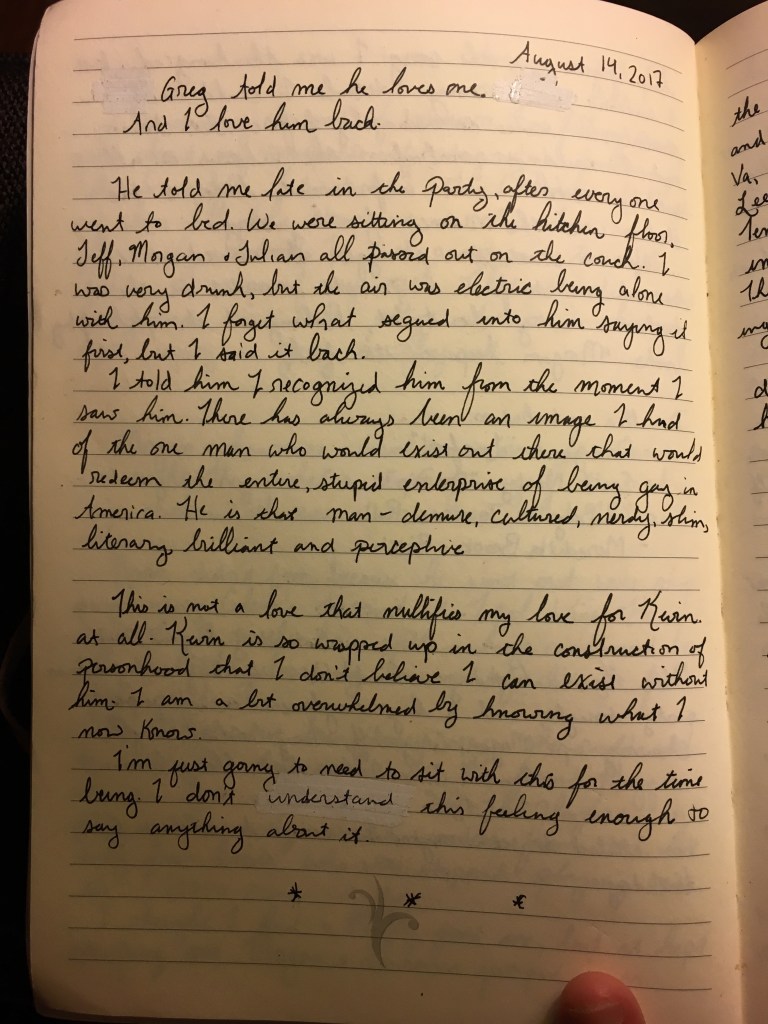 August 14, 2017
Greg told me he loves me.
And I love him back.
He told me late in the party, after everyone
went to bed. We were sitting on the kitchen floor.
Jeff, Morgan & Julian all passed out on the couch. I
was very drunk, but the air was electric being alone
with him. I forget what segued into him saying it
first, but I said it back.
I told him I recognized him from the moment I
saw him. There has always been an image I had
of the one man who would exist out there that would
redeem the entire, stupid enterprise of being gay in
America. He is that man – demure, cultured, nerdy, slim,
literary, brilliant and perceptive
This is not a love that nullifies my love for Kevin.
at all. Kevin is so wrapped up in the construction of
personhood that I don't believe I can exist without
him. I am a bit overwhelmed by knowing what I
now know.
I'm just going to need to sit with this for the time
being. I don't understand this feeling enough to
say anything about it.
* * *
the
and
Va,
Lee